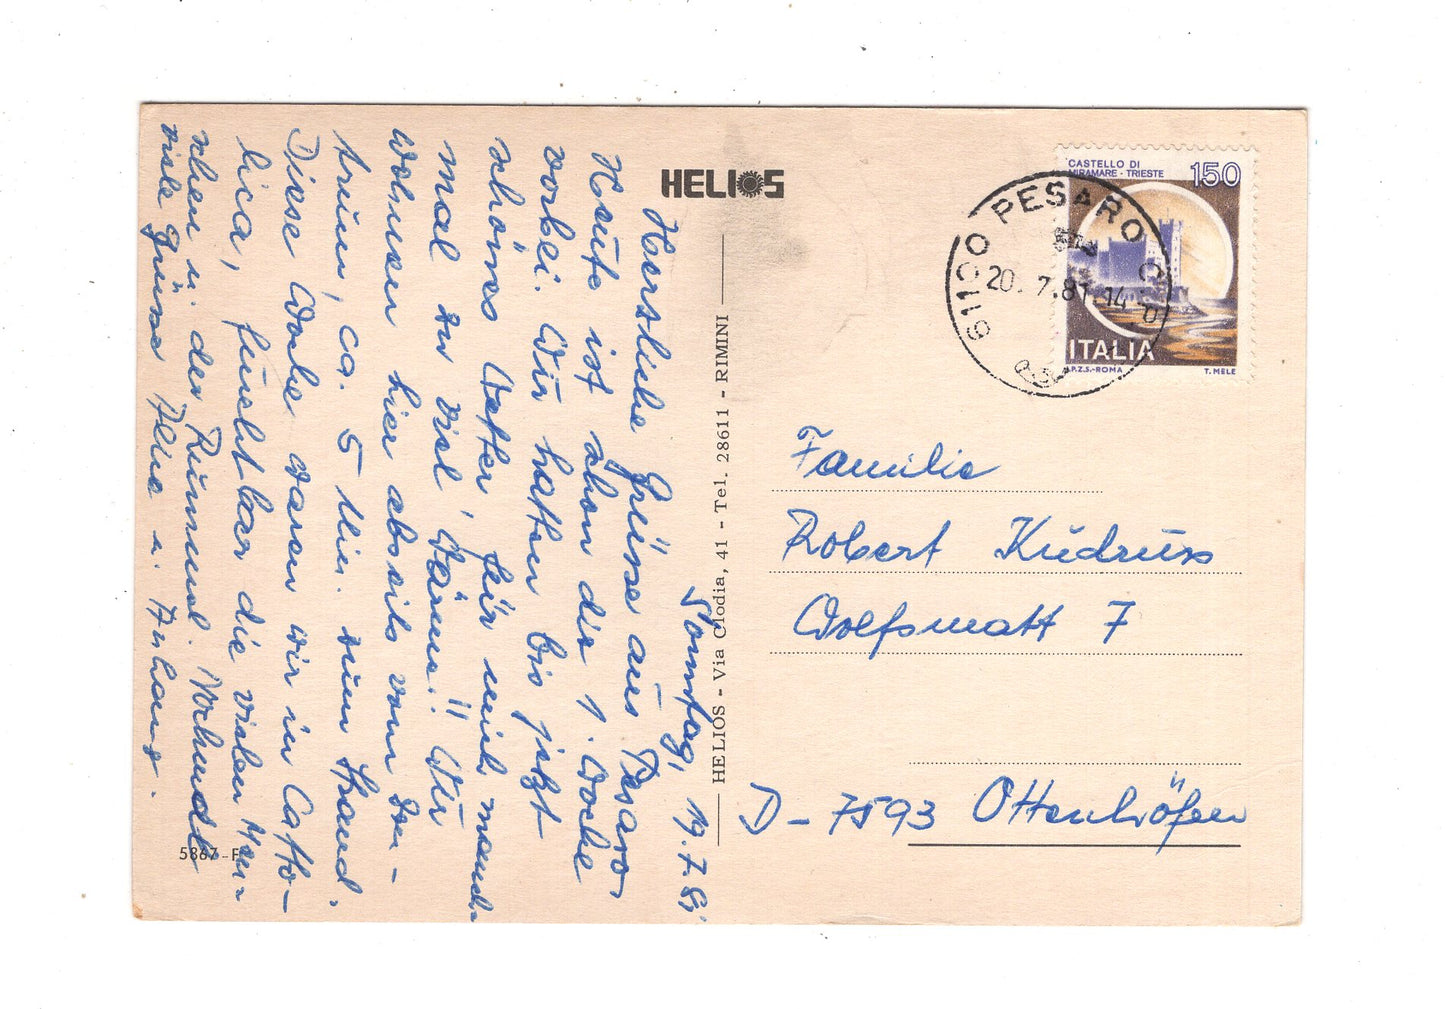 HELIOS
HELIOS - Via Clodia, 41 - Tel. 28611 - RIMINI
5867-F
Sonntag, 19.7.81
Herzliche Grüsse aus Pesaro
Heute ist schon die 1. Woche
vorbei. Wir hatten bis jetzt
schönes Wetter, für mich manch-
mal zu viel Wärme!! Wir
wohnen hier abseits vom Zen-
trum, ca. 5 Min. zum Strand.
Diese Woche waren wir in Catto-
lica, furchtbar die vielen Men-
schen u. der Rummel.
viele Grüsse u. Anhang.
CASTELLO DI
MIRAMARE - TRIESTE
150
ITALIA
I.P.Z.S.-ROMA
T. MELE
61100 PESARO C.P.
20.7.81.14
Familie
Robert
Wolfsmatt 7
D-7593 Ottenhöfen